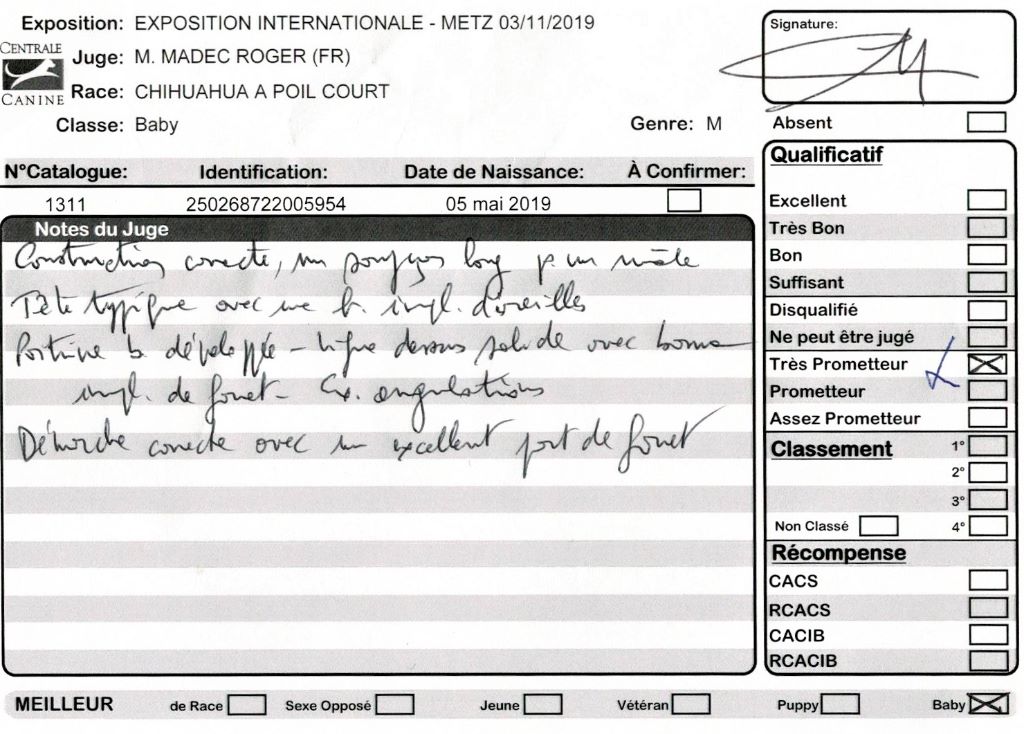 Exposition: EXPOSITION INTERNATIONALE - METZ 03/11/2019
CENTRALE CANINE
Juge: M. MADEC ROGER (FR)
Race: CHIHUAHUA A POIL COURT
Classe: Baby Genre: M
Signature:
Absent
N°Catalogue: Identification: Date de Naissance: À Confirmer:
1311 250268722005954 05 mai 2019
Notes du Juge
Construction correcte, un soupçon long p. un mâle
Tête typique avec une b. impl. d'oreilles
Poitrine b. développée - ligne dessus solide avec bonne
impl. de fouet - Ex. angulations
Démarche correcte avec un excellent port de fouet
Qualificatif
Excellent
Très Bon
Bon
Suffisant
Disqualifié
Ne peut être jugé
Très Prometteur
Prometteur
Assez Prometteur
Classement 1°
2°
3°
Non Classé 4°
Récompense
CACS
RCACS
CACIB
RCACIB
MEILLEUR de Race Sexe Opposé Jeune Vétéran Puppy Baby